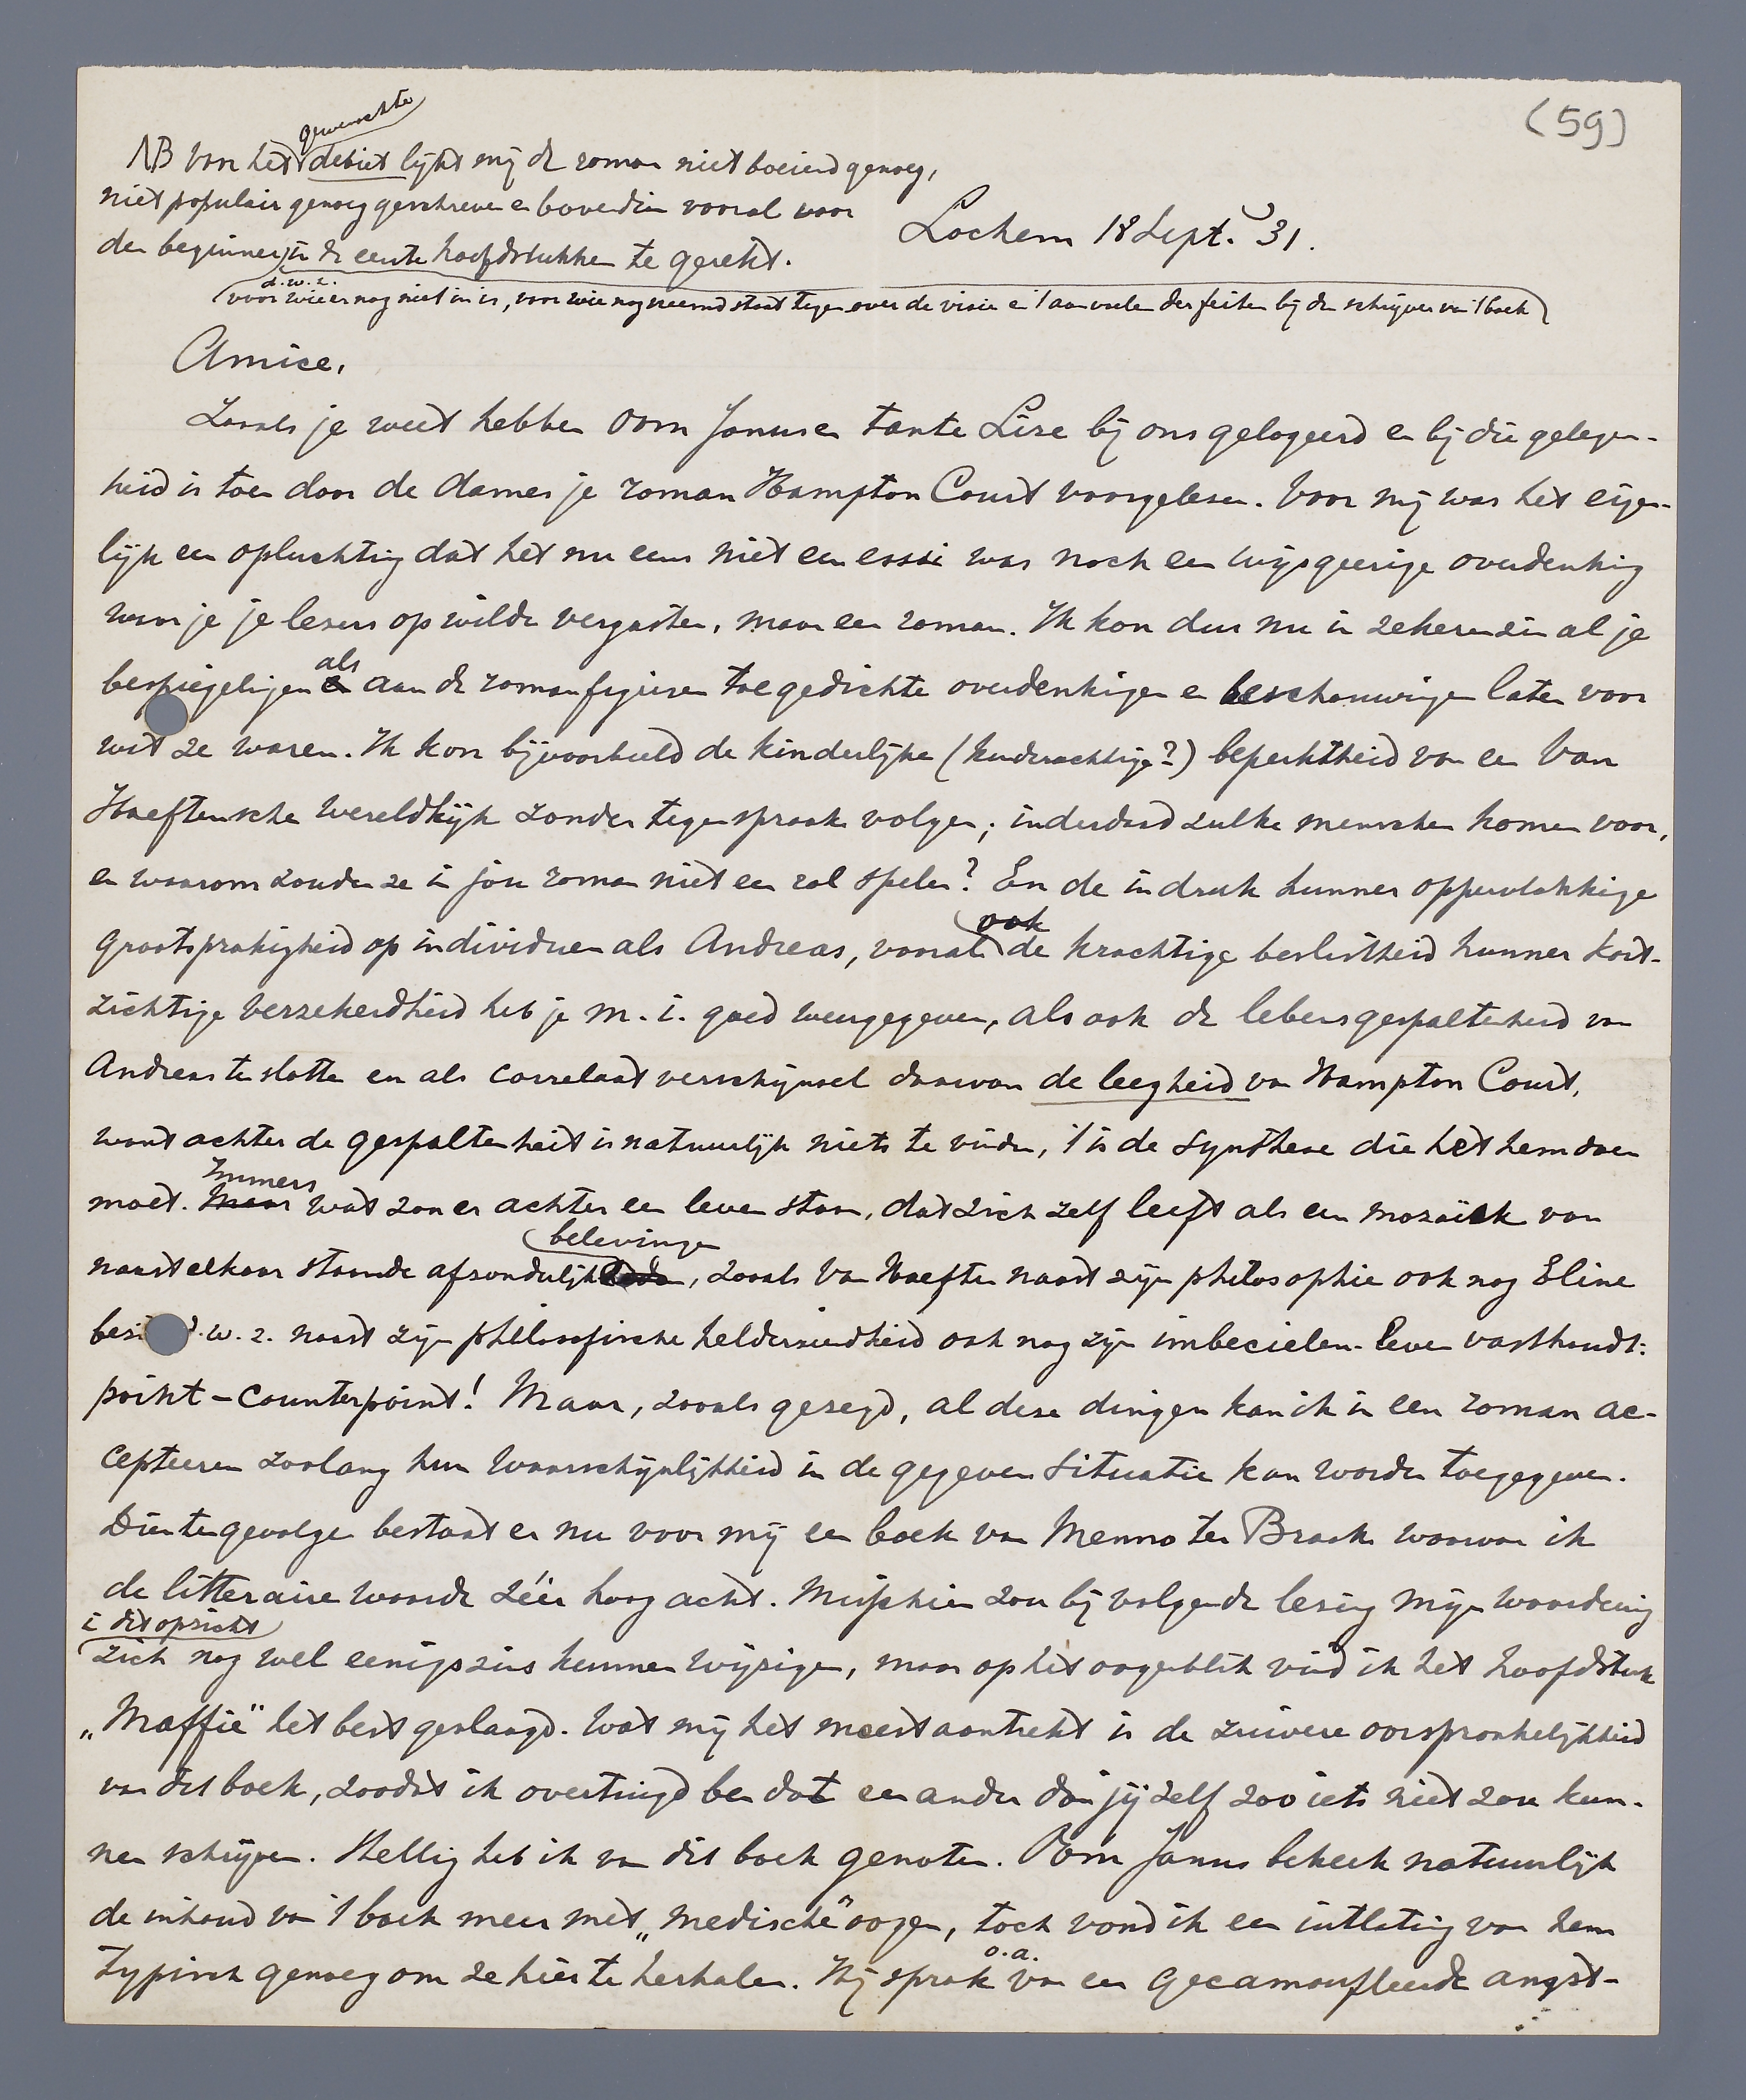 (59)
gewenschte
NB Van het debiet lijkt mij de roman niet boeiend genoeg,
niet populair genoeg geschreven en bovendien vooral voor
den beginner in de eerste hoofdstukken te gerekt.
d.w.z.
voor wie er nog niet in is, voor wie nog vreemd staat tegenover de visie en 't aanvoelen der feiten bij den schrijver van 't boek
Lochem 18 Sept. 31.
Amice,
Zooals je weet hebben Oom Janus en tante Lize bij ons gelogeerd en bij die gelegen-
heid is toen door de dames je roman Hampton Court voorgelezen. Voor mij was het eigen-
lijk een opluchting dat het nu eens niet een essai was noch een wijsgeerige overdenking
waar je je lezers op wilde vergasten, maar een roman. Ik kon dus nu in zekeren zin al je
als
bespiegelingen en aan de romanfiguren toegedichte overdenkingen en beschouwingen laten voor
wat ze waren. Ik kon bijvoorbeeld de kinderlijke (kinderachtige?) beperktheid van een Van
Haeftensche wereldkijk zonder tegenspraak volgen; inderdaad zulke menschen komen voor,
en waarom zouden ze in jou roman niet een rol spelen? En de indruk hunner oppervlakkige
ook
grootsprakigheid op individuen als Andreas, vooral de krachtige beslistheid hunner kort-
zichtige verzekerdheid heb je m.i. goed weergegeven, als ook de lebensgespaltenheid van
Andreas ten slotte en als correlaat verschijnsel daarvan de leegheid van Hampton Court,
want achter de gespaltenheit is natuurlijk niets te vinden, 't is de synthese die het hem doen
Immers
moet. Maar wat zou er achter een leven staan, dat zich zelf leeft als een mozaïek van
belevingen
naast elkaar staande afzonderlijk, zooals Van Haeften naast zijn philosophie ook nog Eline
bezi d.w.z. naast zijn philosofische helderziendheid ook nog zijn imbecielen-leven vasthoudt:
point-counterpoint! Maar, zooals gezegd, al deze dingen kan ik in een roman ac-
cepteeren zoolang hun waarschijnlijkheid in de gegeven situatie kan worden toegegeven.
Dientengevolge bestaat er nu voor mij een boek van Menno ter Braak waarvan ik
de litteraire waarde zéér hoog acht. Misschien zou bij volgende lezing mijn waardeering
in dit opzicht
zich nog wel eenigszins kunnen wijzigen, maar op het oogenblik vind ik het hoofdstuk
„Maffie" het best geslaagd. Wat mij het meest aantrekt is de zuivere oorspronkelijkheid
van dit boek, zoodat ik overtuigd ben dat een ander dan jijzelf zoo iets niet zou kun-
nen schrijven. Stellig heb ik van dit boek genoten. Oom Janus bekeek natuurlijk
de inhoud van 't boek meer met „medische" oogen, toch vond ik een uitlating van hem
o.a.
typisch genoeg om ze hier te herhalen. Hij sprak van een gecamoufleerde angst-